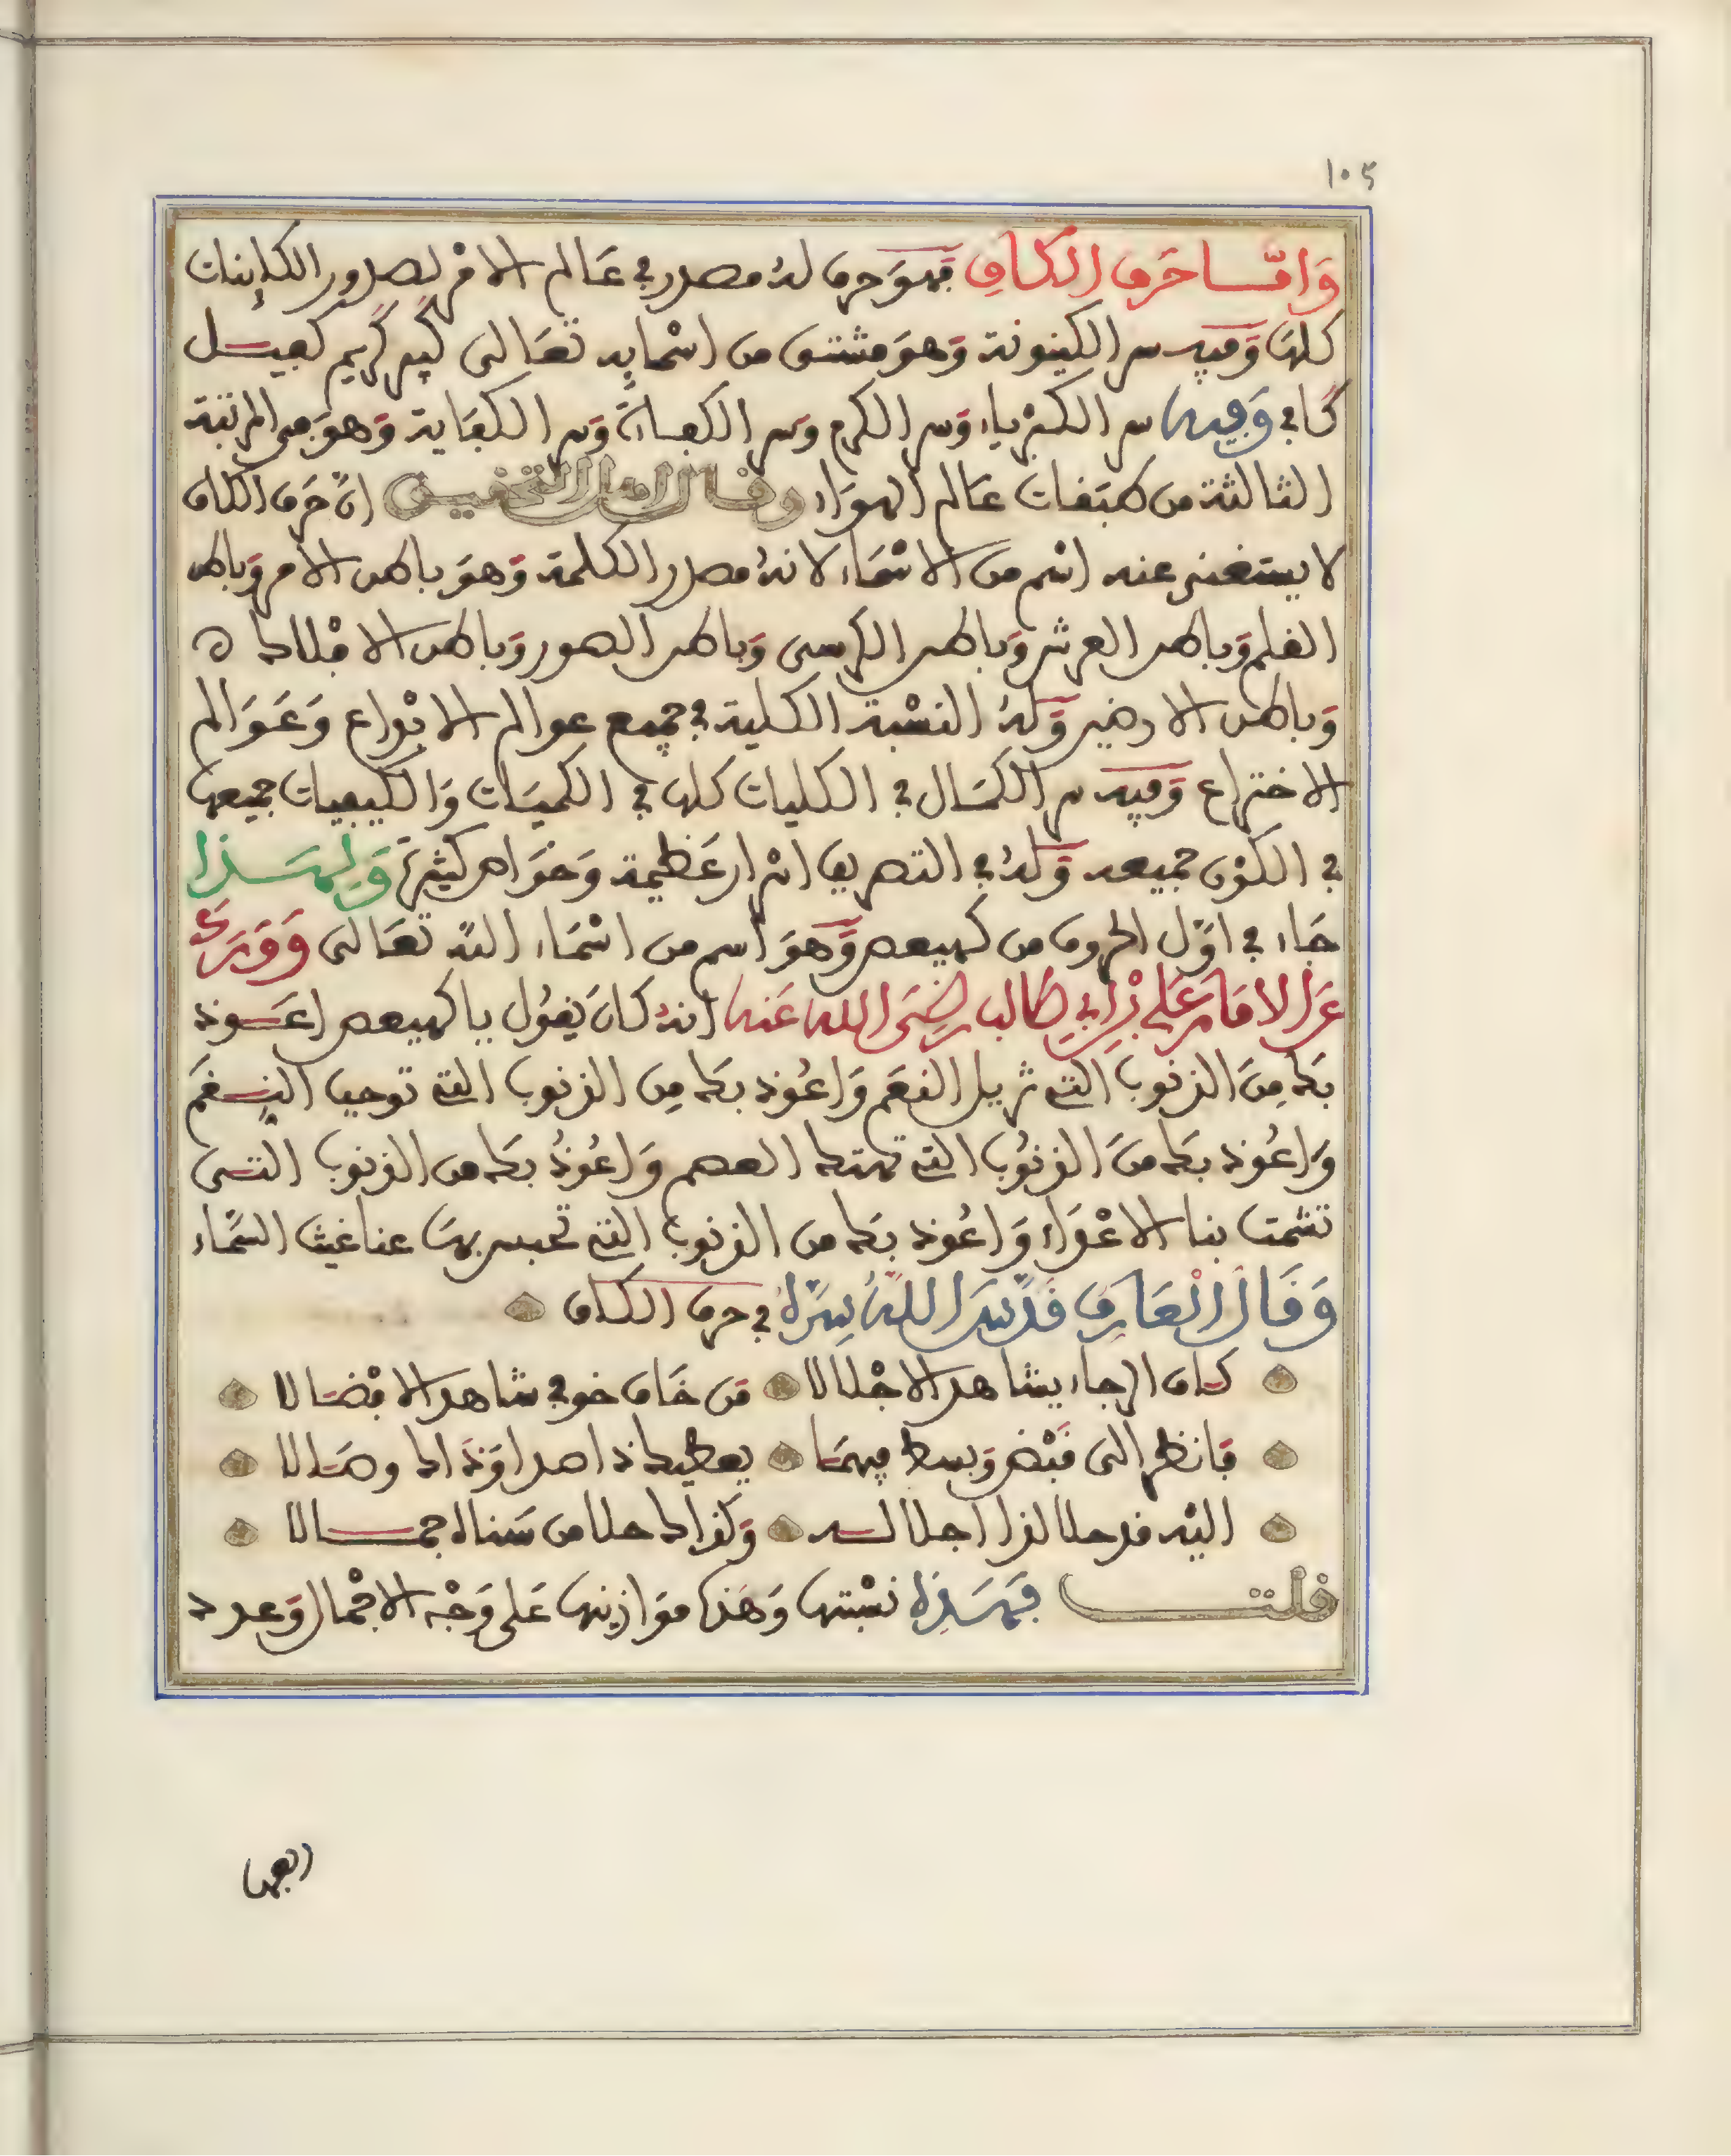 ١٠٥
وَامَّا حَرف الكاف فهو حرف له مصدر في عَالم الامْر لصدور الكاينات
كلها وَفيه سر الكينونة وَهوَ مشتق من اسْمايه تعَالى كبير كريم كفيل
كافي وَفيه سر الكبرْياء وَسر الكرم وَسر الكفالة وَسر الكفاية وَهوَ في المرتبة
الثالثة من طبَقات عَالم الهوَاء وقال اهل التحقيق انّ حَرف الكاف
لا يستغنى عنه اسْم من الاسْمَاء لانهُ مصدر الكلمة وَهوَ باطن الامر وَباطن
القلم وَباطن العرش وَباطن الكرسى وَباطن الصور وَباطن الافْلاك ه
وَباطن الارضين وَلهُ النسْبة الكلية في جميع عوالم الابْداع وَعَوَالم
الاختراع وَفيه سر الكمَال في الكليات كلها في الكميَات وَالكيفيات جميعها
في الكوْن جميعه وَلهُ في التصريف اسْرار عَظيمة وَخوَاص كثيرَة وَلهَذا
جَاء في اوّل الحروف من كهيعص وَهوَ اسم من اسْمَاء اللّه تعَالى وَوَرَدَ
عَن الامَام عَلي بْن ابي طَالب رضىَ الله عَنه انهُ كانَ يقوُل يا كهيعص اعَوذ
بكَ مِنَ الذنوب التي تزيل النعَم وَاعُوذ بكَ مِن الذنوب التي توجب النِقمَ
وَاعُوذ بكَ منَ الذنوُب التي تهتك العصم وَاعُوذُ بكَ من الذنوب التى
تشمت بنا الاعْدَاء وَاعُوذ بكَ من الذنوب التي تحبس بهَا عنا غيث السّمَاء
وَقَالَ الْعَارِف قَدّسَ اللّهُ سِرّهُ في حرف الكاف
كاف الرجاء يشاهد الاجْلالا من خَاف خوفي شاهد الافْضالا
فَانظر الى قَبْض وَبسط فيهمَا يعطيك ذا صدا وَذَاك وصَالا
اللّه قد جلا لذا اجلالـه وَكذاك جلا من سَناه جمـالا
قلت فهَذه نسْبتها وَهَذه موَازينها عَلى وَجْه الاجْمال وَعدد
ابعها